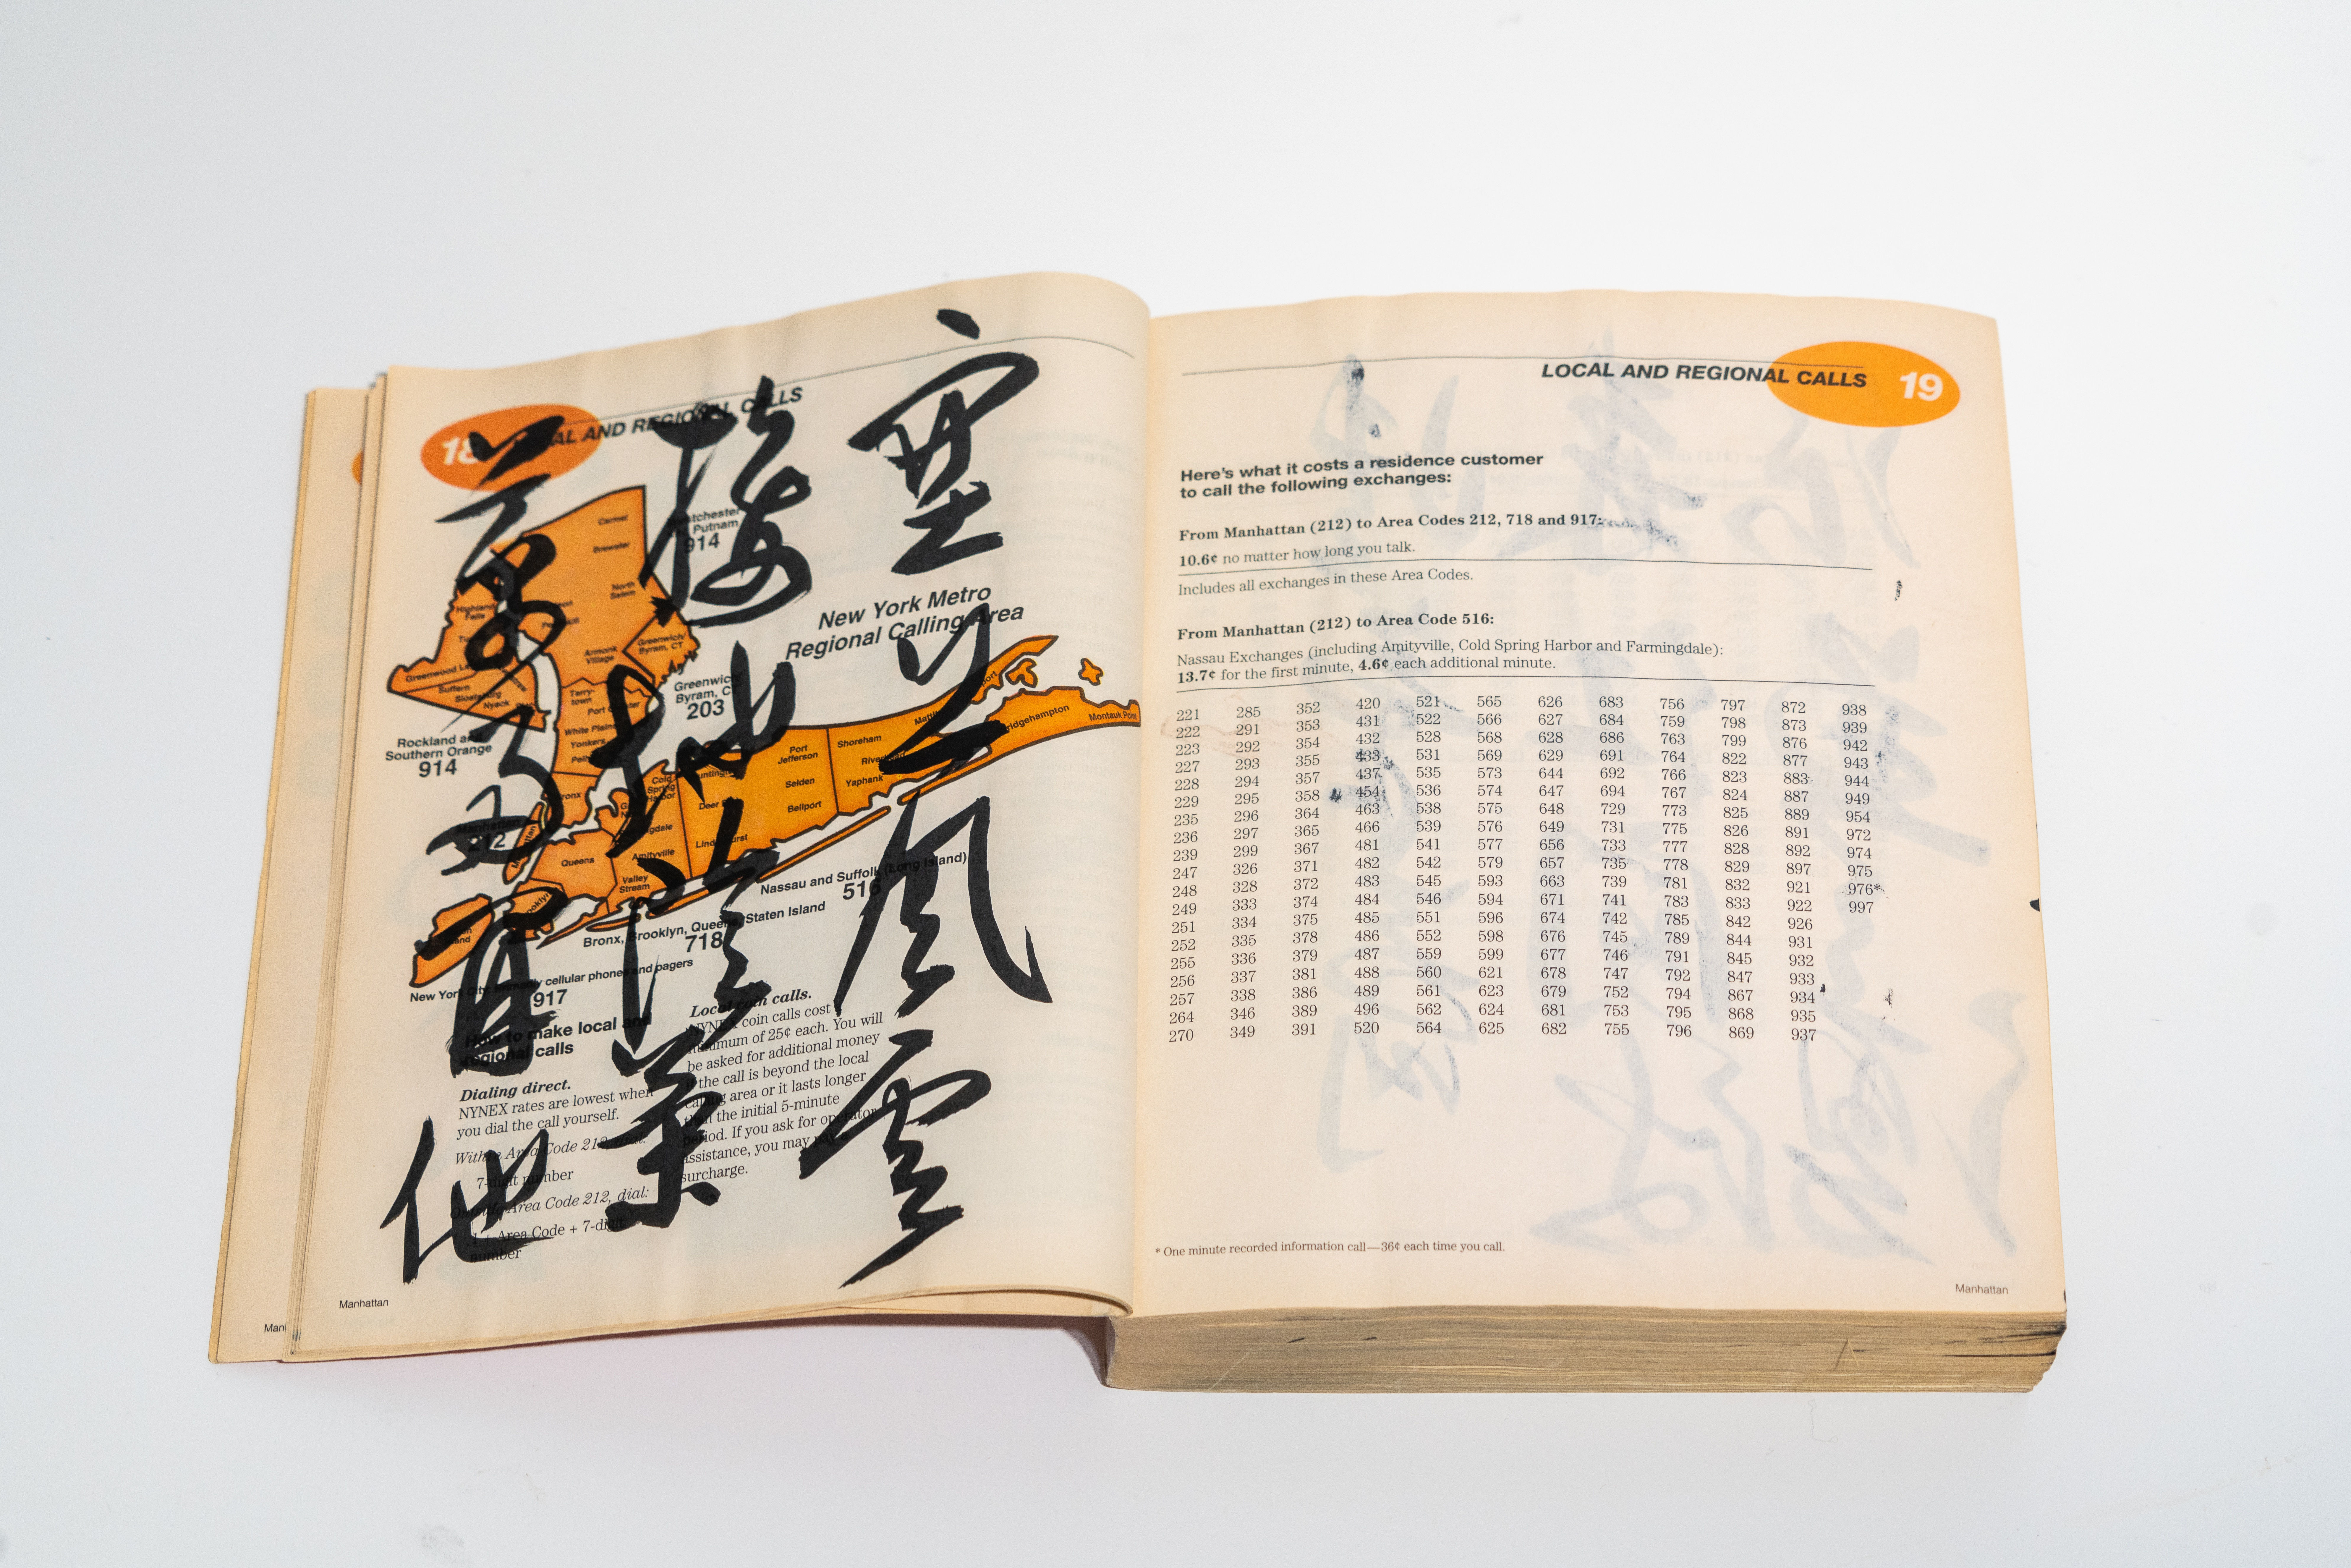 塞上風雲
接地陰叢
菊兩開他
18
LOCAL AND REGIONAL CALLS
New York Metro
Regional Calling Area
Westchester
Putnam
914
Carmel
Brewster
North
Salem
Highland
Falls
Armonk
Village
Greenwich/
Byram, CT
Greenwood
Suffern
Sloatsburg
Nyack
Tarry-
town
Port Chester
White Plains
Yonkers
Greenwich
Byram, CT
203
Rockland and
Southern Orange
914
Manhattan
212
Bronx
Queens
Brooklyn
Cold
Spring
Harbor
Huntington
Deer
Amityville
Lindenhurst
Valley
Stream
Port
Jefferson
Selden
Bellport
Shoreham
Yaphank
Bridgehampton
Montauk Point
Nassau and Suffolk (Long Island)
516
Bronx, Brooklyn, Queens, Staten Island
718
New York City cellular phones and pagers
917
How to make local and
regional calls
Dialing direct.
NYNEX rates are lowest when
you dial the call yourself.
Within Area Code 212, dial:
7-digit number
Outside Area Code 212, dial:
1 + Area Code + 7-digit
number
Local coin calls.
NYNEX coin calls cost
minimum of 25¢ each. You will
be asked for additional money
if the call is beyond the local
calling area or it lasts longer
than the initial 5-minute
period. If you ask for operator
assistance, you may pay a
surcharge.
Manhattan
LOCAL AND REGIONAL CALLS 19
Here's what it costs a residence customer
to call the following exchanges:
From Manhattan (212) to Area Codes 212, 718 and 917:
10.6¢ no matter how long you talk.
Includes all exchanges in these Area Codes.
From Manhattan (212) to Area Code 516:
Nassau Exchanges (including Amityville, Cold Spring Harbor and Farmingdale):
13.7¢ for the first minute, 4.6¢ each additional minute.
221 285 352 420 521 565 626 683 756 797 872 938
222 291 353 431 522 566 627 684 759 798 873 939
223 292 354 432 528 568 628 686 763 799 876 942
227 293 355 433 531 569 629 691 764 822 877 943
228 294 357 437 535 573 644 692 766 823 883 944
229 295 358 454 536 574 647 694 767 824 887 949
235 296 364 463 538 575 648 729 773 825 889 954
236 297 365 466 539 576 649 731 775 826 891 972
239 299 367 481 541 577 656 733 777 828 892 974
247 326 371 482 542 579 657 735 778 829 897 975
248 328 372 483 545 593 663 739 781 832 921 976*
249 333 374 484 546 594 671 741 783 833 922 997
251 334 375 485 551 596 674 742 785 842 926
252 335 378 486 552 598 676 745 789 844 931
255 336 379 487 559 599 677 746 791 845 932
256 337 381 488 560 621 678 747 792 847 933
257 338 386 489 561 623 679 752 794 867 934
264 346 389 496 562 624 681 753 795 868 935
270 349 391 520 564 625 682 755 796 869 937
* One minute recorded information call—36¢ each time you call.
Manhattan